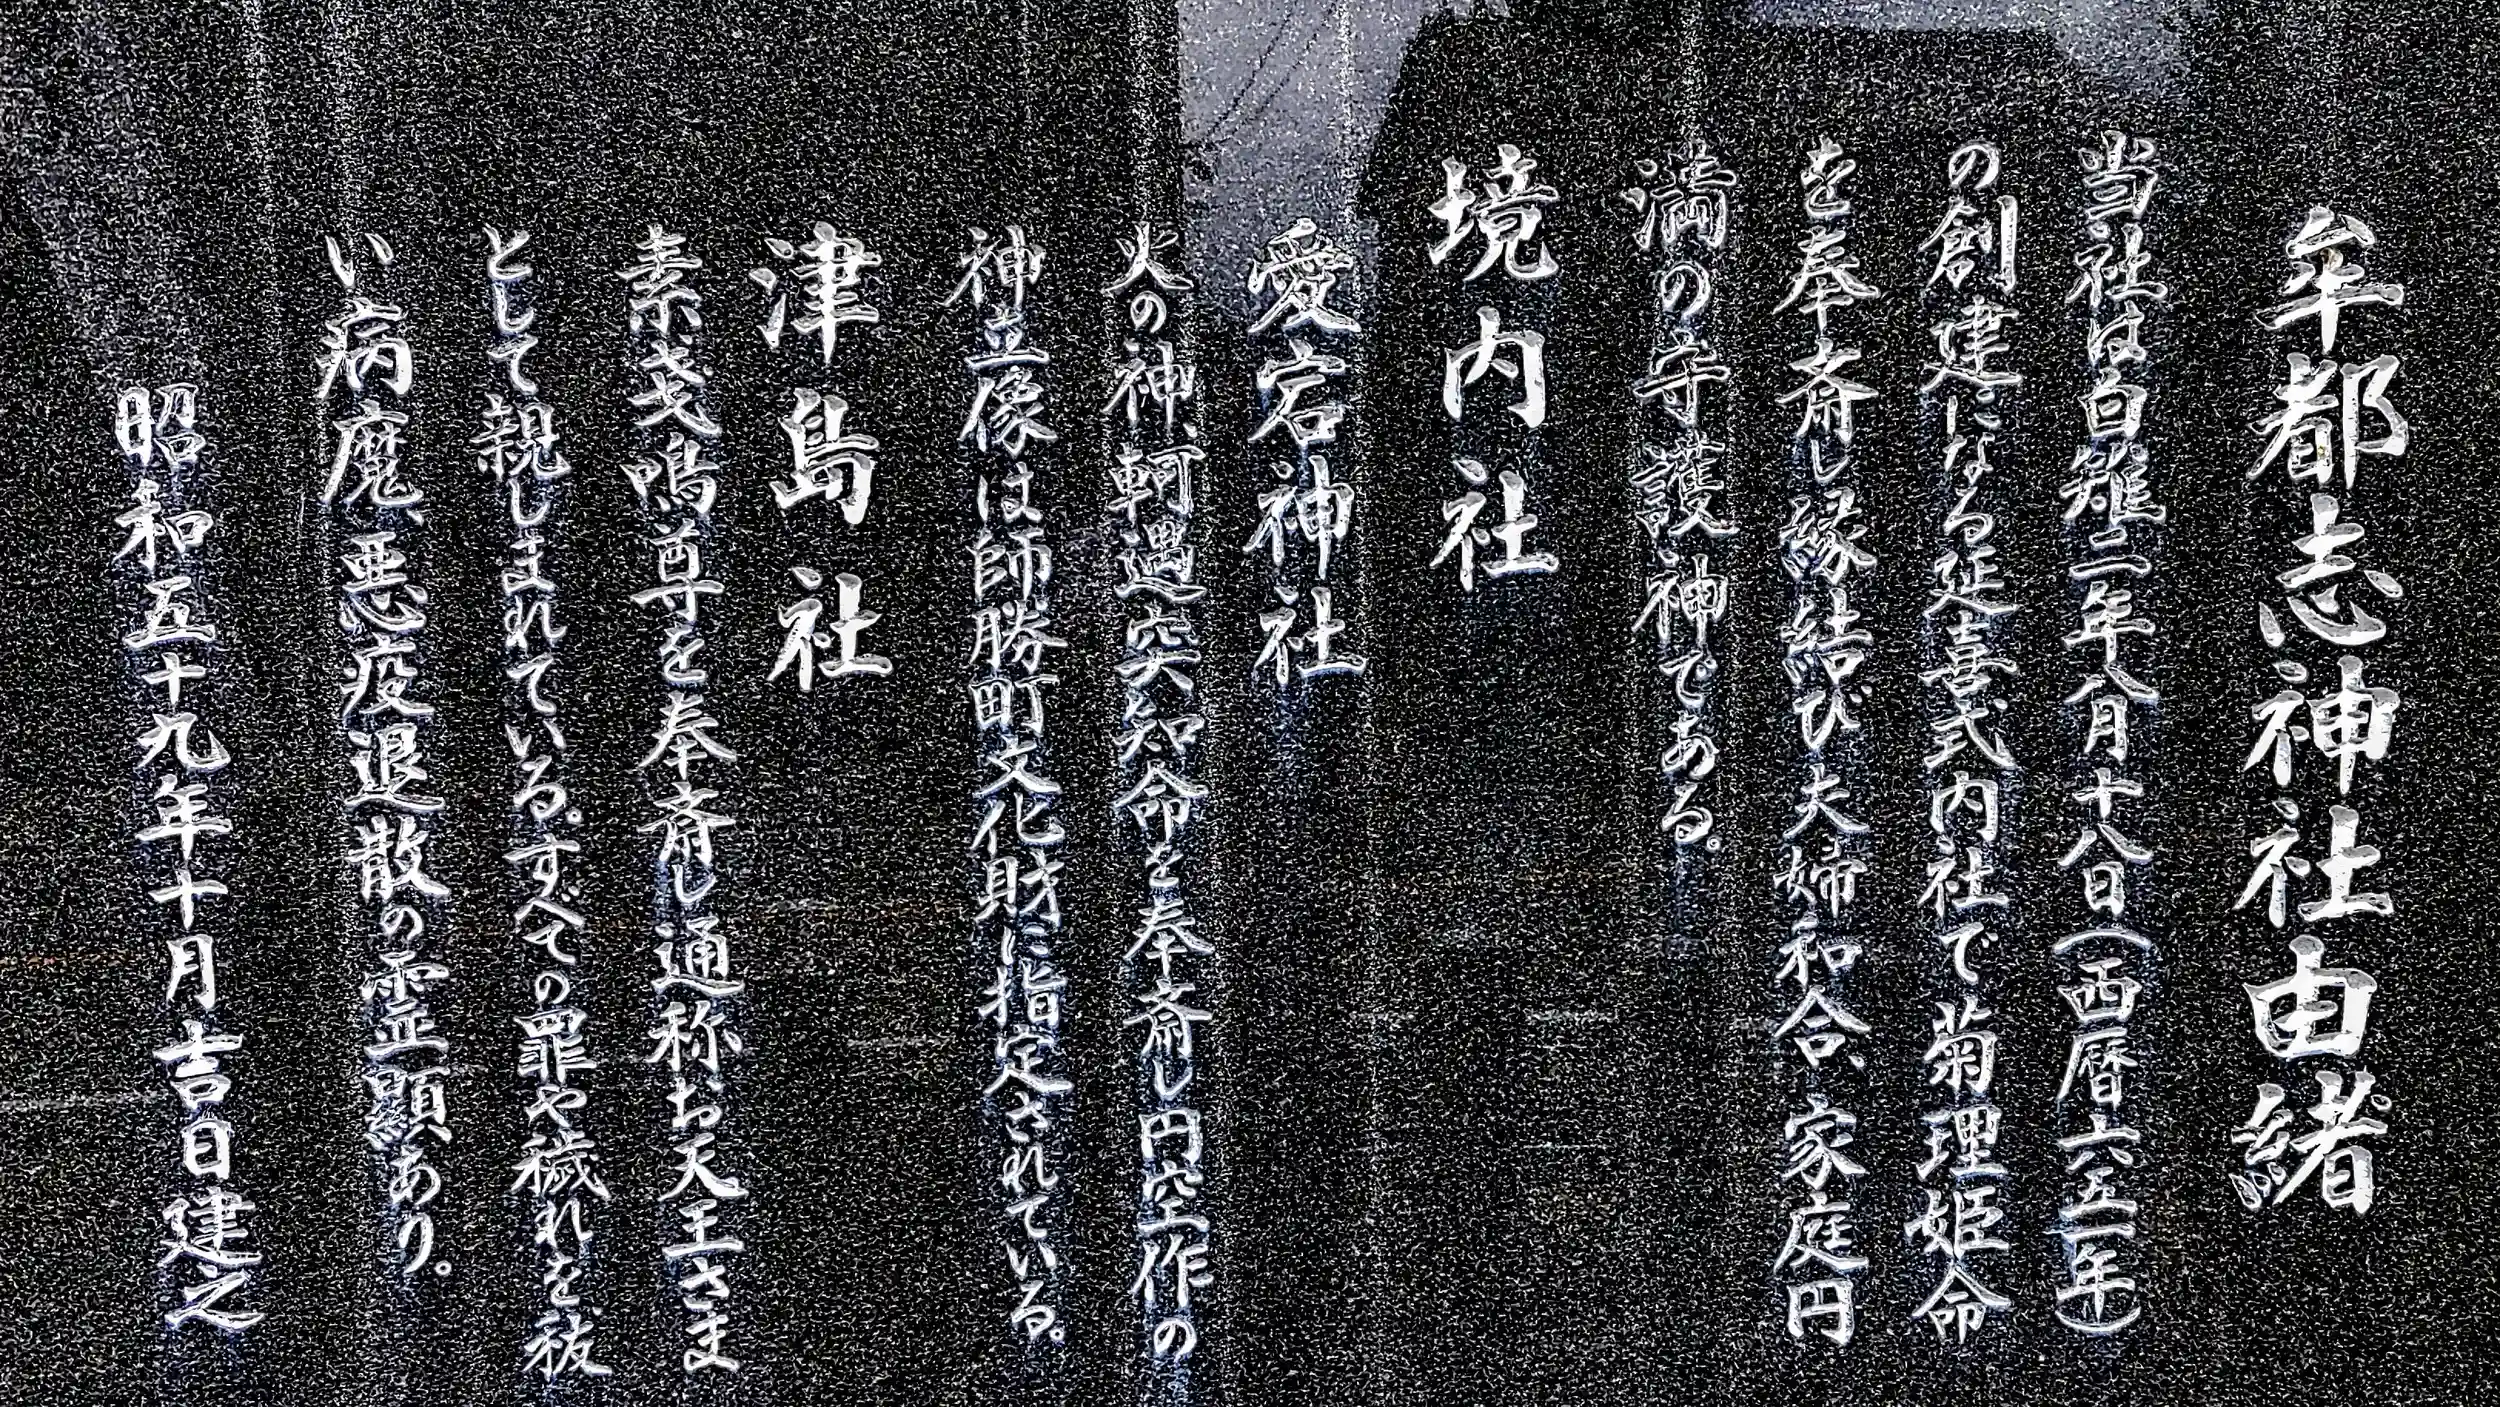 牟都志神社由緒
当社は白雉二年八月十八日(西暦六五一年)
の創建になる延喜式内社で菊理姫命
を奉斎し縁結び夫婦和合、家庭円
満の守護神である。
境内社
愛宕神社
火の神、軻遇突知命を奉斎し円空作の
神立像は師勝町文化財に指定されている。
津島社
素戔嗚尊を奉斎し通称お天王さま
として親しまれている。すべての罪や穢れを、祓
い病魔、悪疫退散の霊顕あり。
昭和五十九年十月吉日建之